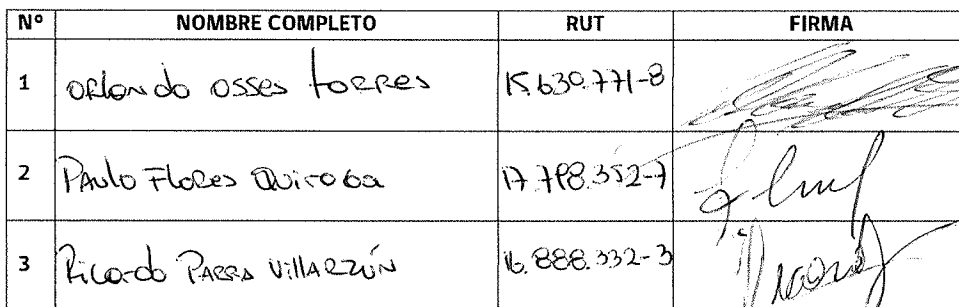 Nº NOMBRE COMPLETO RUT FIRMA
1 Orlando Osses Torres 15.630.771-8
2 Paulo Flores Quiroga 17.798.352-7
3 Ricardo Parra Villarzún 16.888.332-3